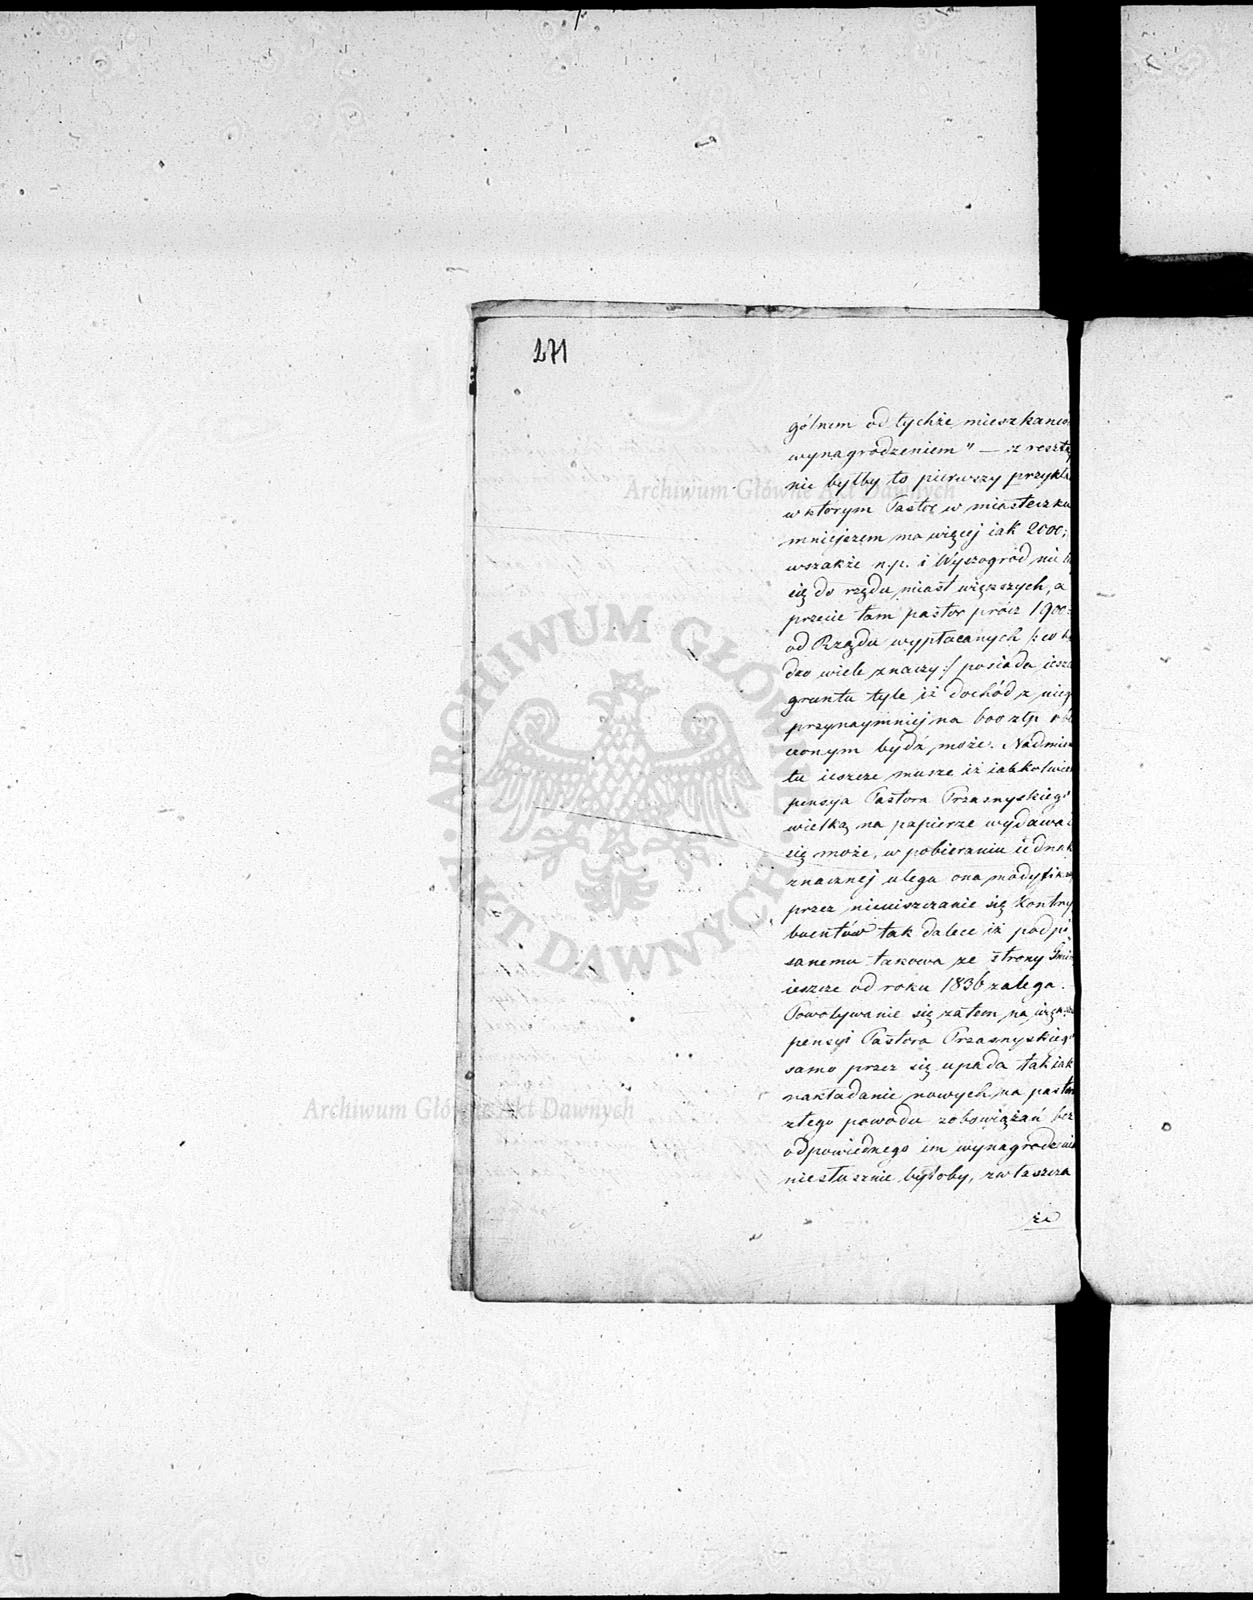 271
gólnem od tychże mieszkańców
wynagrodzeniem" — z resztą
nie byłby to pierwszy przykła
w którym Pastor w miasteczku
mniejszem ma więcej iak 2000;
wszakże n.p. i Wyszogród nie
się do rzędu miast większych, a
przecie tam pastor prócz 1900
od Rządu wypłacanych /: co ba
dzo wiele znaczy :/ posiada iesz
gruntu tyle iż dochód z nieg
przynaymniej na 600 złp. obli
czonym bydź może. Nadmien
tu ieszcze muszę iż iakkolwiek
pensya Pastora Przasnyskiego
wielką na papierze wydawać
się może, w pobieraniu iednak
znacznej ulega ona modyfika
przez nieuiszczanie się Kontry
buentów tak dalece iż podpi
sanemu takowa ze strony Gmi
ieszcze od roku 1836 zalega.
Powoływanie się zatem na
pensyi Pastora Przasnyskiego
samo przez się upada tak iak
nakładanie nowych na pastor
z tego powodu zobowiązań bez
odpowiednego im wynagrodzenia
niesłusznie byłoby, zwłaszcza
że
Archiwum Główne Akt Dawnych
ARCHIWUM GŁÓWNE AKT DAWNYCH
Archiwum Główne Akt Dawnych